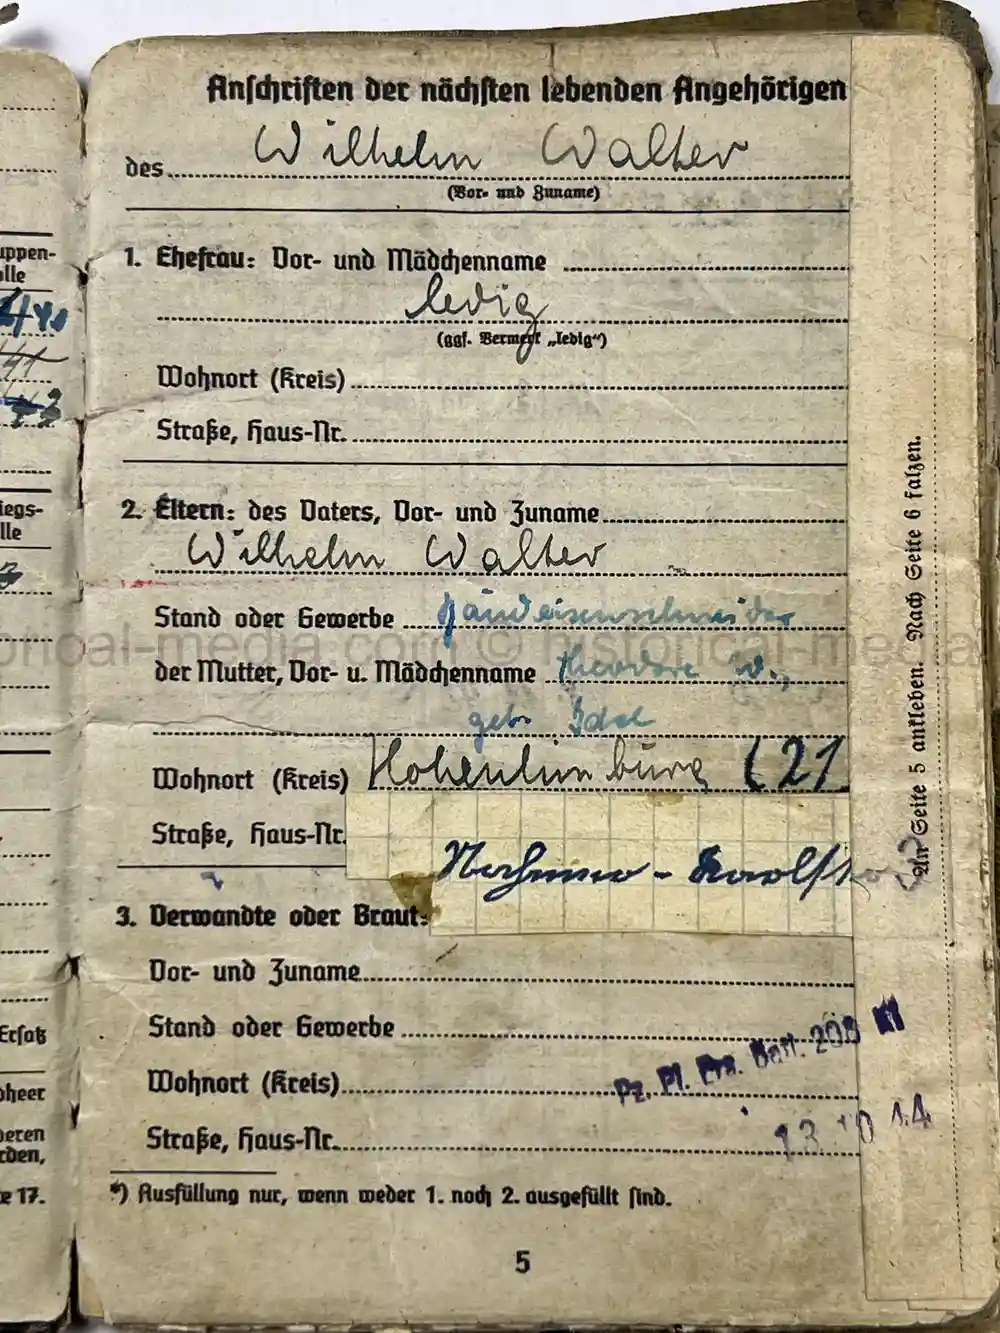 Anschriften der nächsten lebenden Angehörigen
des Wilhelm Walter
(Vor- und Zuname)
1. Ehefrau: Vor- und Mädchenname
ledig
(ggf. Vermerk „ledig“)
Wohnort (Kreis)
Straße, Haus-Nr.
2. Eltern: des Vaters, Vor- und Zuname
Wilhelm Walter
Stand oder Gewerbe
der Mutter, Vor- u. Mädchenname Theodore W.,
geb.
Wohnort (Kreis) Hohenlimburg (21
Straße, Haus-Nr.
3. Verwandte oder Braut:
Vor- und Zuname
Stand oder Gewerbe
Wohnort (Kreis)
Straße, Haus-Nr.
Pz. Pi. Ers. Batl. 208
13 10 44
*) Ausfüllung nur, wenn weder 1. noch 2. ausgefüllt sind.
5
An Seite 5 ankleben. Nach Seite 6 falzen.
uppen-
olle
iegs-
lle
Ersatz
oheer
deren
rden,
te 17.
orical-media.com © historical-media